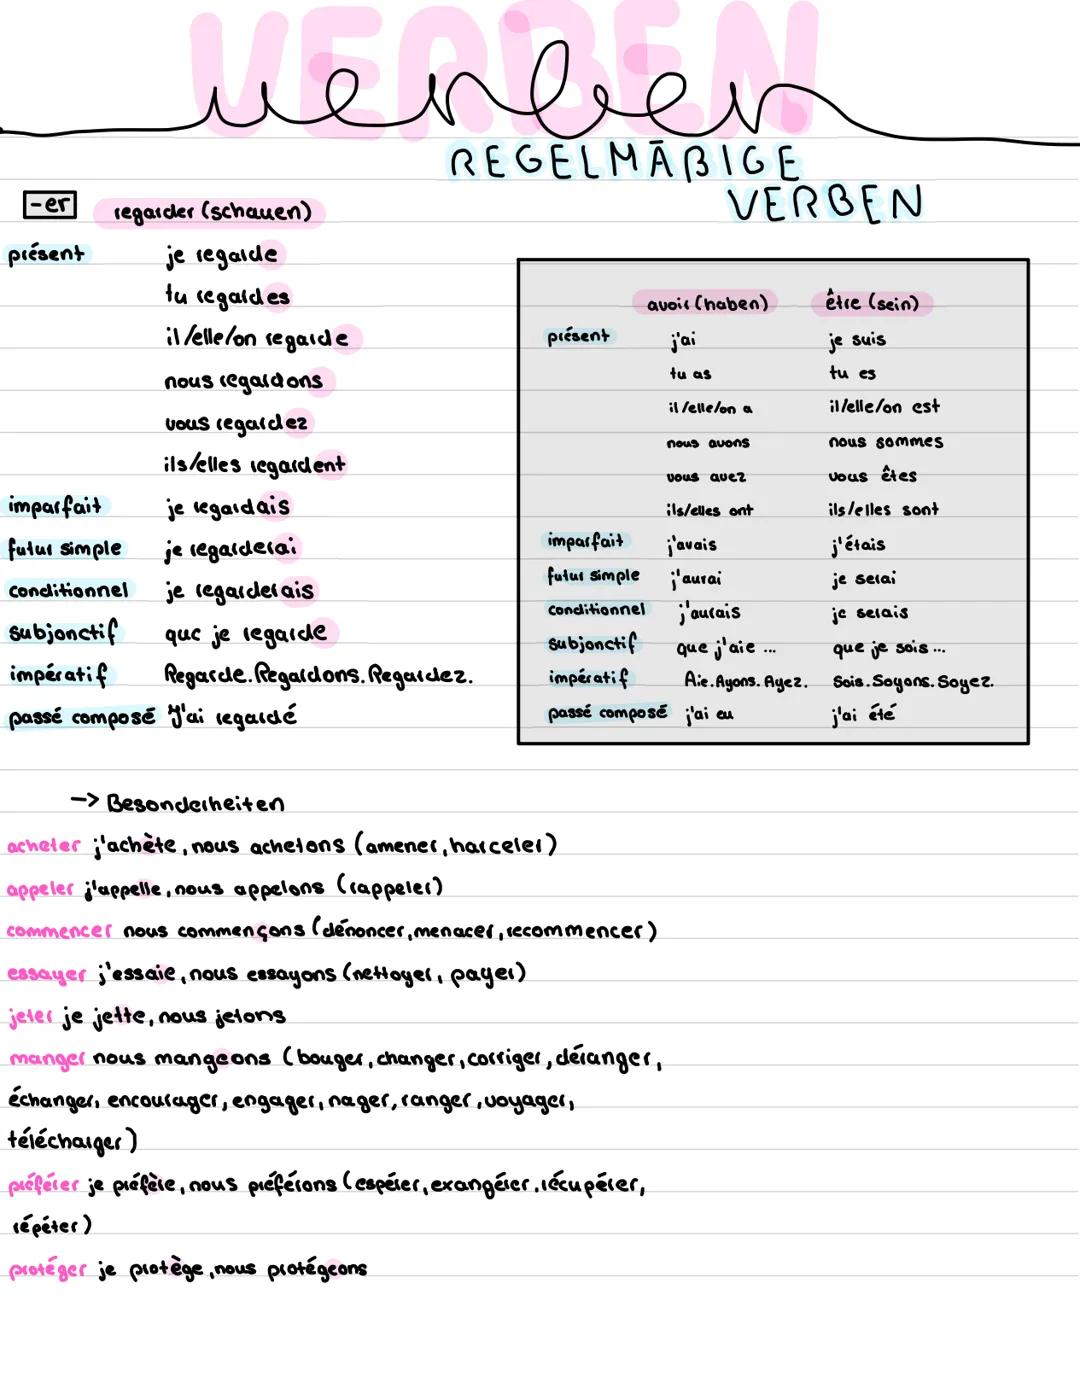 VERBEN
verben
REGELMÄßIGE
VERBEN
-er regarder (schauen)
présent je regarde
tu regardes
il/elle/on regarde
nous regardons
vous regardez
ils/elles regardent
imparfait je regardais
futur simple je regarderai
conditionnel je regarderais
subjonctif que je regarde
impératif Regarde. Regardons. Regardez.
passé composé J'ai regardé
avoir (haben) être (sein)
présent j'ai je suis
tu as tu es
il/elle/on a il/elle/on est
nous avons nous sommes
vous avez vous êtes
ils/elles ont ils/elles sont
imparfait j'avais j'étais
futur simple j'aurai je serai
conditionnel j'aurais je serais
subjonctif que j'aie ... que je sois ...
impératif Aie. Ayons. Ayez. Sois. Soyons. Soyez.
passé composé j'ai eu j'ai été
-> Besonderheiten
acheter j'achète, nous achetons (amener, harceler)
appeler j'appelle, nous appelons (rappeler)
commencer nous commençons (dénoncer, menacer, recommencer)
essayer j'essaie, nous essayons (nettoyer, payer)
jeter je jette, nous jetons
manger nous mangeons (bouger, changer, corriger, déranger,
échanger, encourager, engager, nager, ranger, voyager,
télécharger)
préférer je préfère, nous préférons (espérer, exangérer, récupérer,
répéter)
protéger je protège, nous protégeons